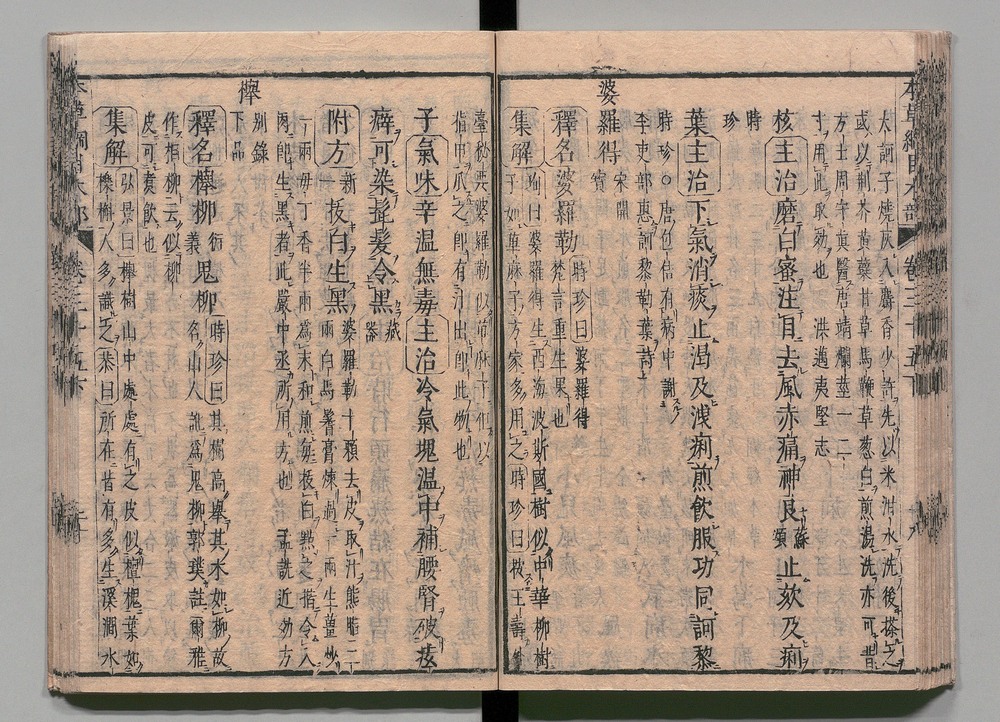 大訶子燒灰入麝香少許先以米泔水洗後搽之
或以荊芥黃蘗甘草馬鞭草葱白煎湯洗亦可昔
方士周守真醫唐靖爛莖一二
寸用此取効也 洪邁夷堅志
核 主治 磨白蜜注目去風赤痛神良 蘇頌 止欬及痢
時珍
葉 主治 下氣消痰止渴及洩痢煎飲服功同訶黎
時珍○唐包佶有病中謝
李吏部惠訶黎勒葉詩
婆羅得 宋開寶
釋名 婆羅勒 時珍曰婆羅得
梵言重生果也
集解 珣曰婆羅得生西海波斯國樹似中華柳樹
子如蓖麻子方家多用之時珍曰按王燾外
臺秘要婆羅勒似蓖麻子但以
指甲爪之即有汁出即此物也
子 氣味 辛温無毒 主治 冷氣塊温中補腰腎破痃
癖可染髭髮令黑 藏器
附方 新 拔白生黑 婆羅勒十顆去皮取汁熊脂二
兩白馬鬐膏煉過一兩生薑炒
一兩母丁香半兩爲末和煎每拔白點之揩令入
肉即生黑者此嚴中丞所用方也 孟詵近効方
櫸 別錄
下品
釋名 櫸柳 衍義 鬼柳 時珍曰其樹高舉其木如柳故
名山人訛爲鬼柳郭璞註爾雅
作柜柳云似柳
皮可煑飲也
集解 弘景曰櫸樹山中處處有之皮似檀槐葉如
櫟槲人多識之恭曰所在皆有多生溪澗水